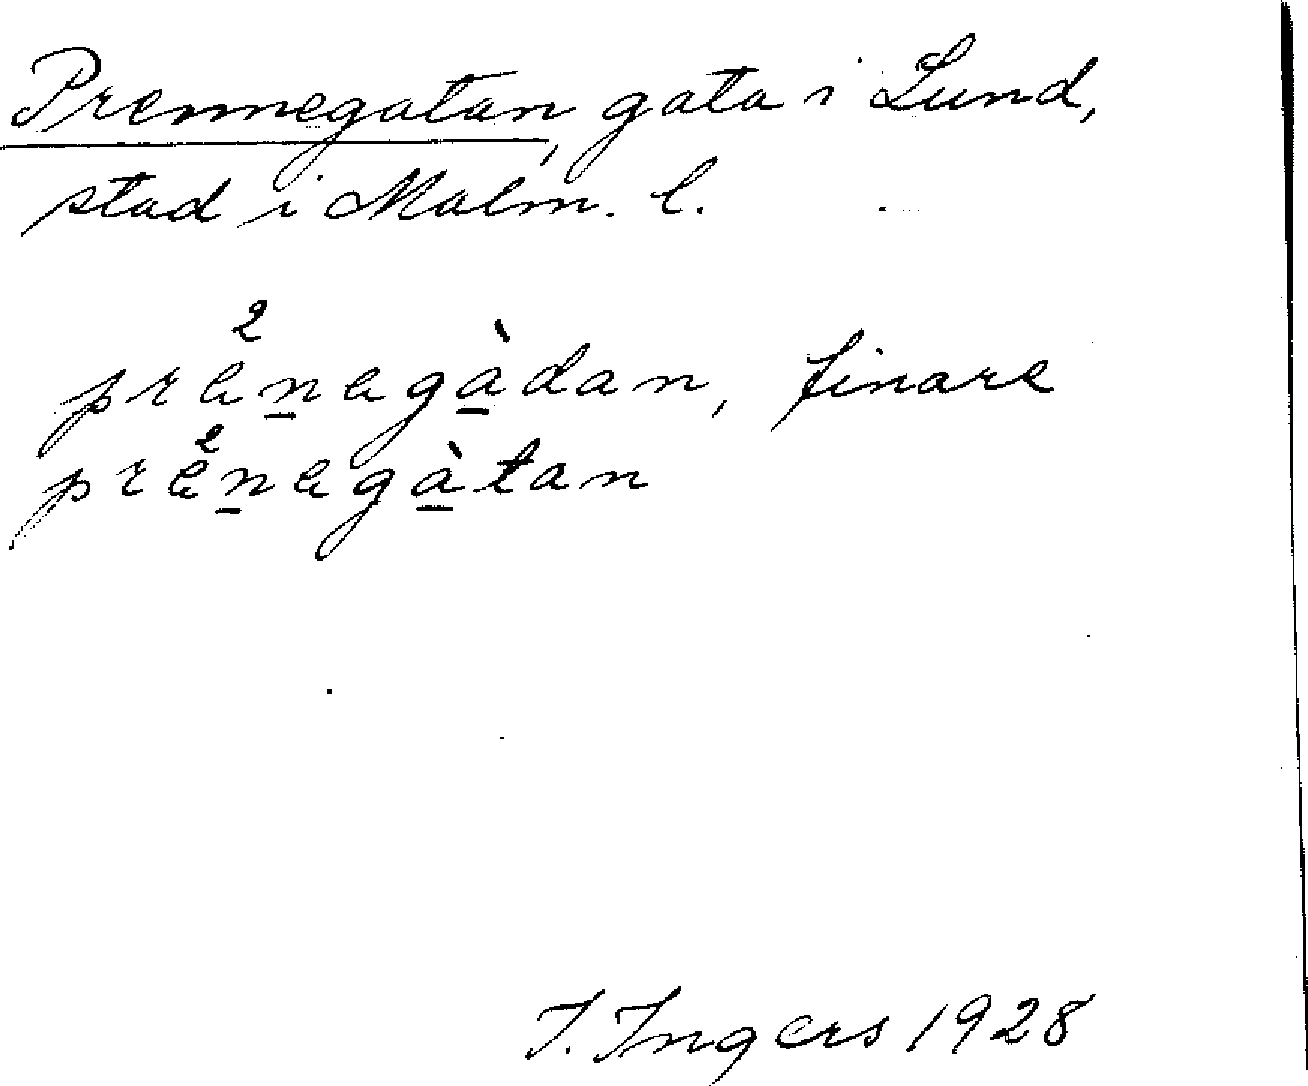 Prennegatan, gata i Lund,
stad i Malm. l.
prä²nagàdan, finare
prä²nagàtan
I. Ingers 1928